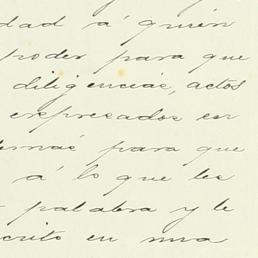 dad á quien
poder para que
diligencias, actos
expresados en
demás para que
á lo que les
palabra y le
scrito en una